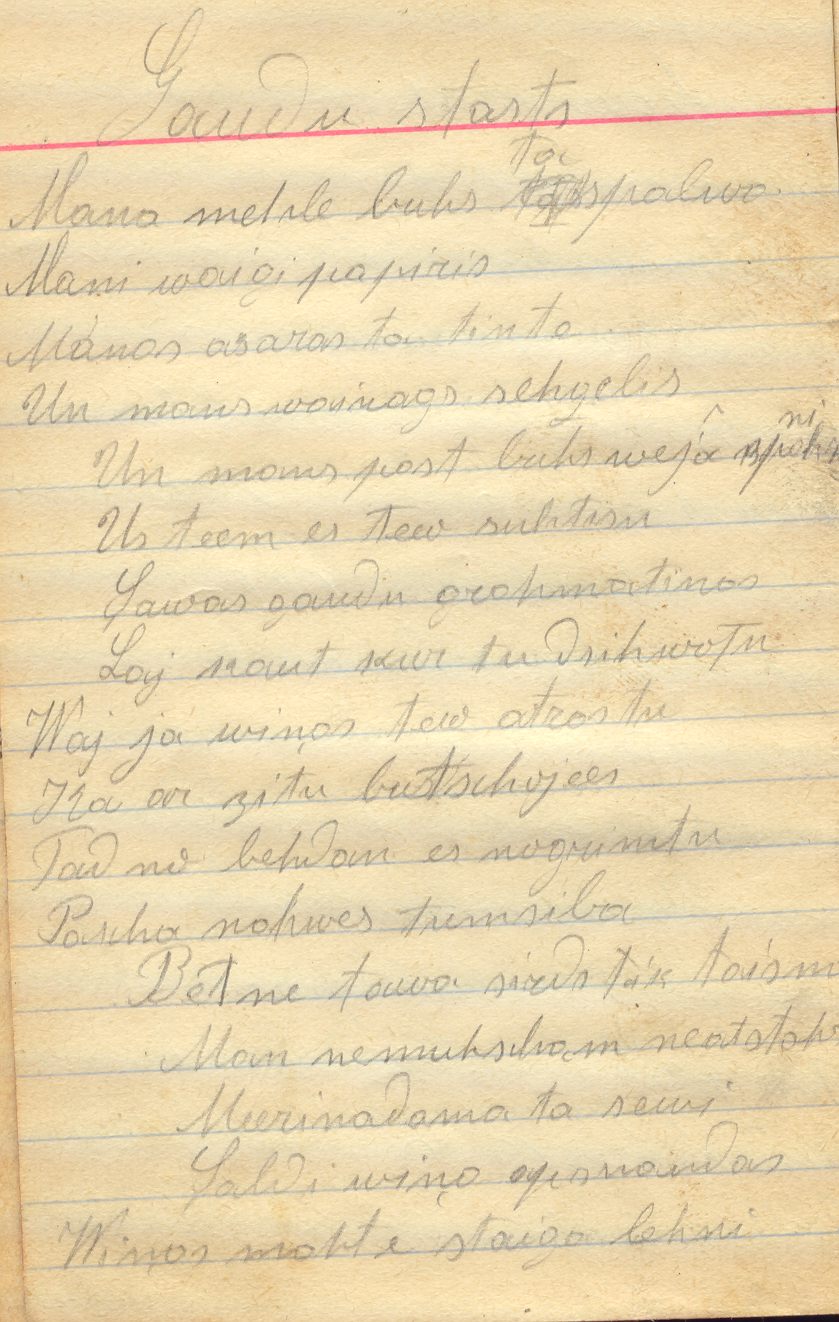 Gaudu starts
Mana mehle buhs ta spalwa
Mani waigi papiris
Manas asaras ta tinte
Un mans wainags sehgelis
Un mans past buhs wejâ spahrni
Us teem es tew suhtisu
Sawas gaudu grahmatinas
Laj kaut kur tu dsihwotu
Waj ja winas tew atrastu
Ka ar zitu butschojees
Tad no behdam es nogrimtu
Pascha nahwes tumsiba
Bet ne tawa sirds tik taisna
Man nemuhscham neatstahs
Meerinadama ta sewi
Saldi wina
Winas mahte staiga lehni